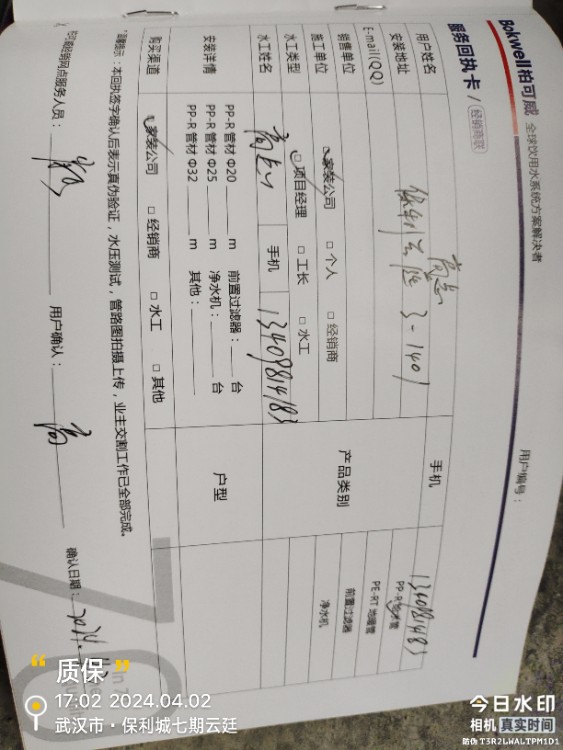 Bokwell柏可威 全球饮用水系统方案解决者
服务回执卡 / 经销商联
用户编号：
用户姓名
手机 13409814183
安装地址 保利云廷 3-1401
E-mail(QQ)
产品类别
PP-R给水管
PE-RT 地暖管
前置过滤器
净水机
销售单位 家装公司 □ 个人 □ 经销商
施工单位
水工类型 □ 项目经理 □ 工长 □ 水工
水工姓名
手机 13409814183
安装详情
PP-R 管材 Φ20 ____ m 前置过滤器：____ 台
PP-R 管材 Φ25 ____ m 净水机：____ 台
PP-R 管材 Φ32 ____ m 其他：____
户型
购买渠道 家装公司 □ 经销商 □ 水工 □ 其他
*温馨提示：本回执签字确认后表示真伪验证，水压测试，管路图拍摄上传，业主交割工作已全部完成。
柏可威经销网点服务人员：
用户确认：高
确认日期：2024.
质保
17:02 2024.04.02
武汉市·保利城七期云廷
今日水印
相机 真实时间
防伪 T3R2LWALTPM1D1